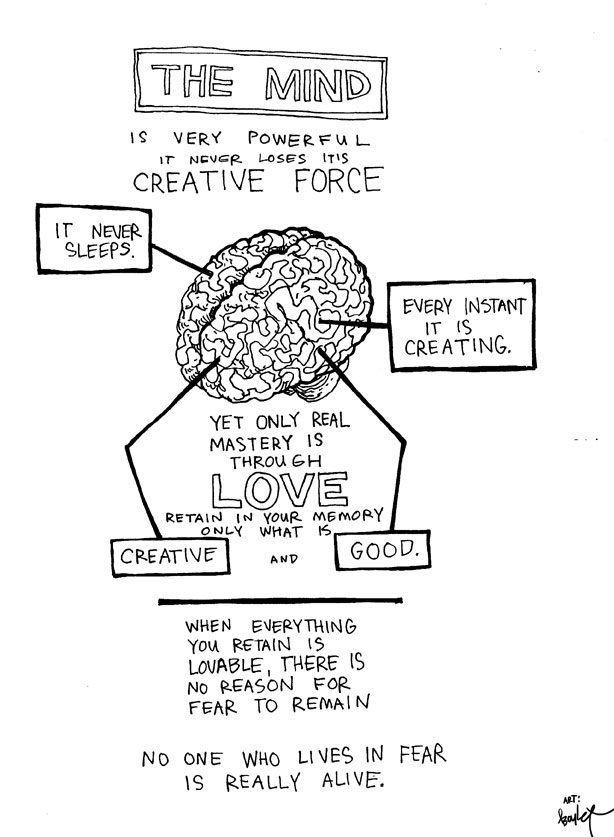 THE MIND
IS VERY POWERFUL
IT NEVER LOSES IT'S
CREATIVE FORCE
IT NEVER
SLEEPS.
EVERY INSTANT
IT IS
CREATING.
YET ONLY REAL
MASTERY IS
THROUGH
LOVE
RETAIN IN YOUR MEMORY
ONLY WHAT IS
CREATIVE
AND
GOOD.
WHEN EVERYTHING
YOU RETAIN IS
LOVABLE, THERE IS
NO REASON FOR
FEAR TO REMAIN
NO ONE WHO LIVES IN FEAR
IS REALLY ALIVE.
ART: